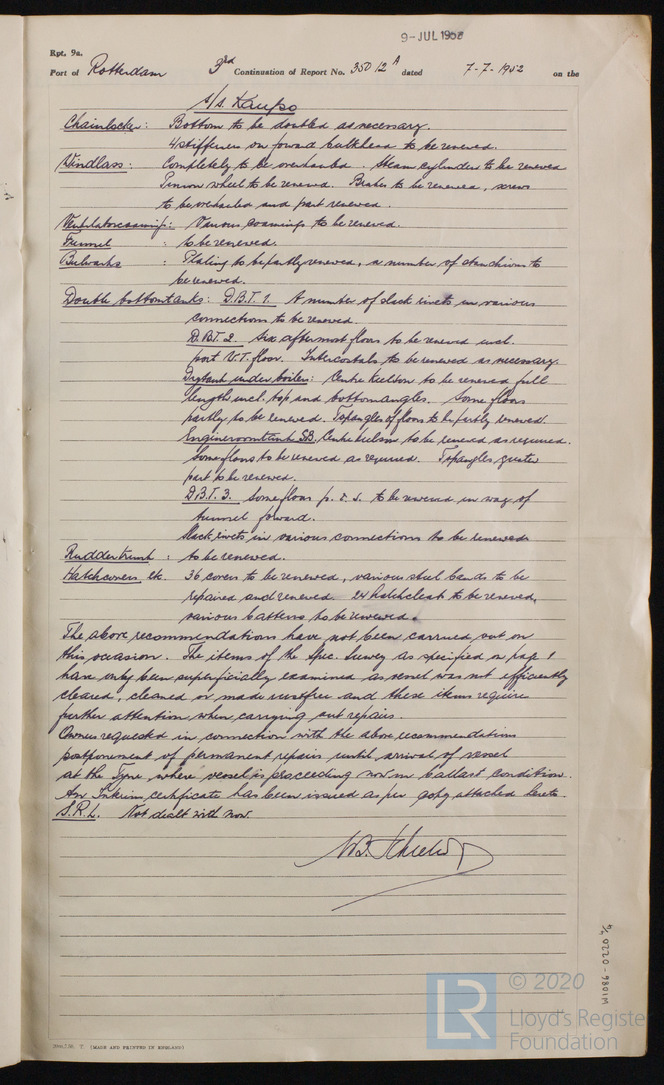 9-JUL 1952
Rpt. 9a.
Port of Rotterdam 3rd Continuation of Report No. 35012A dated 7-7-1952 on the
s/s. Kaupo
Chainlocker: Bottom to be doubled as necessary.
4 stiffeners on forward bulkhead to be renewed.
Windlass: Completely to be overhauled. Steam cylinders to be renewed
Pinion wheel to be renewed. Brakes to be renewed, screws
to be overhauled and part renewed.
Ventilatorcoamings: Various coamings to be renewed.
Funnel : to be renewed.
Bulwarks : Plating to be partly renewed, a number of stanchions to
be renewed.
Double bottomtanks: D.B.T. 1. A number of slack rivets in various
connections to be renewed.
D.B.T. 2. Six aftermost floors to be renewed incl.
port W.T. floor. Intercostals to be renewed as necessary.
Drytank under boiler: Centre keelson to be renewed full
length incl. top and bottomangles. Some floors
partly to be renewed. Topangles of floors to be partly renewed.
Engineroomtank SB. Centre keelson to be renewed as required.
Some floors to be renewed as required. Topangles greater
part to be renewed.
D.B.T. 3. Some floors p. & s. to be renewed in way of
tunnel forward.
Slack rivets in various connections to be renewed
Ruddertrunk : to be renewed.
Hatchcovers, etc. 36 covers to be renewed, various steel bands to be
repaired and renewed. 24 hatchcleats to be renewed,
various battens to be renewed.
The above recommendations have not been carried out on
this occasion. The items of the Spec. Survey as specified on page 1
have only been superficially examined as vessel was not efficiently
cleared, cleaned or made rustfree and these items require
further attention when carrying out repairs.
Owners requested in connection with the above recommendations
postponement of permanent repairs until arrival of vessel
at the Tyne where vessel is proceeding now in ballast condition.
An Interim certificate has been issued as per copy attached hereto.
S.R.L. Not dealt with now.
(MADE AND PRINTED IN ENGLAND)
W1086-0220 4/4
LR
© 2020
Lloyd's Register
Foundation